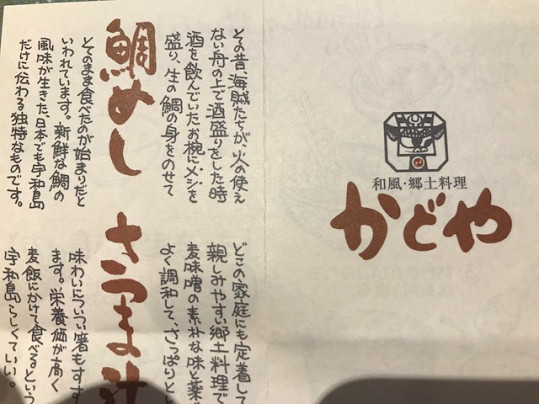 和風・郷土料理
かどや
鯛めし
その昔、海賊たちが、火の使え
ない舟の上で酒盛りをした時
酒を飲んでいたお椀にメシを
盛り、生の鯛の身をのせて
そのまま食べたのが始まりだと
いわれています。新鮮な鯛の
風味が生きた、日本でも宇和島
だけに伝わる独特なものです。
さつま汁
どこの家庭にも定着して
親しみやすい郷土料理で
麦味噌の素朴な味と薬
よく調和して、さっぱりとい
味わいについつい箸もすす
ます。栄養価が高く
麦飯にかけて食べるという
宇和島らしくていい。